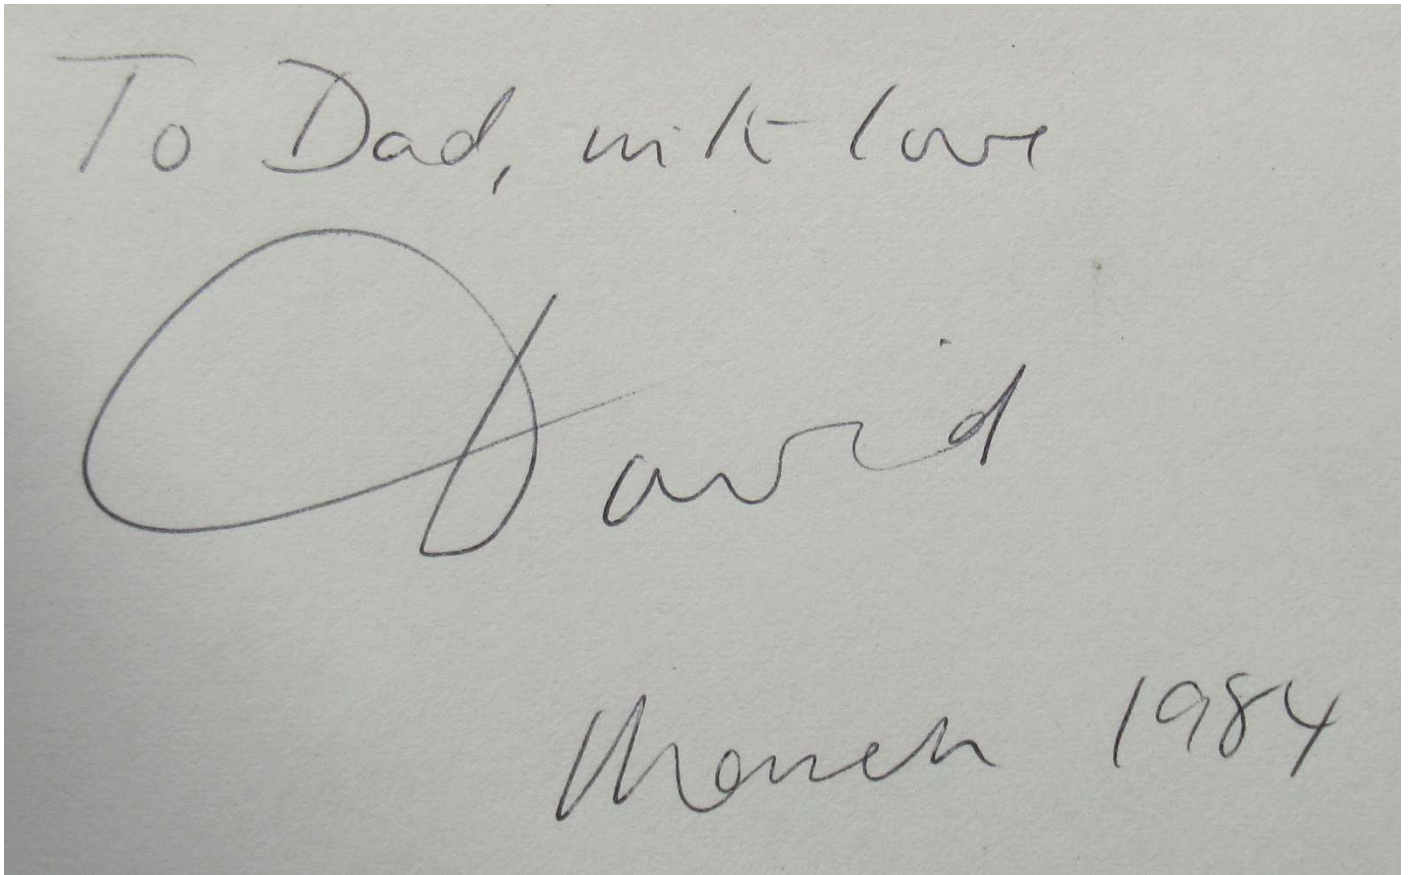 To Dad, with love
David
March 1984